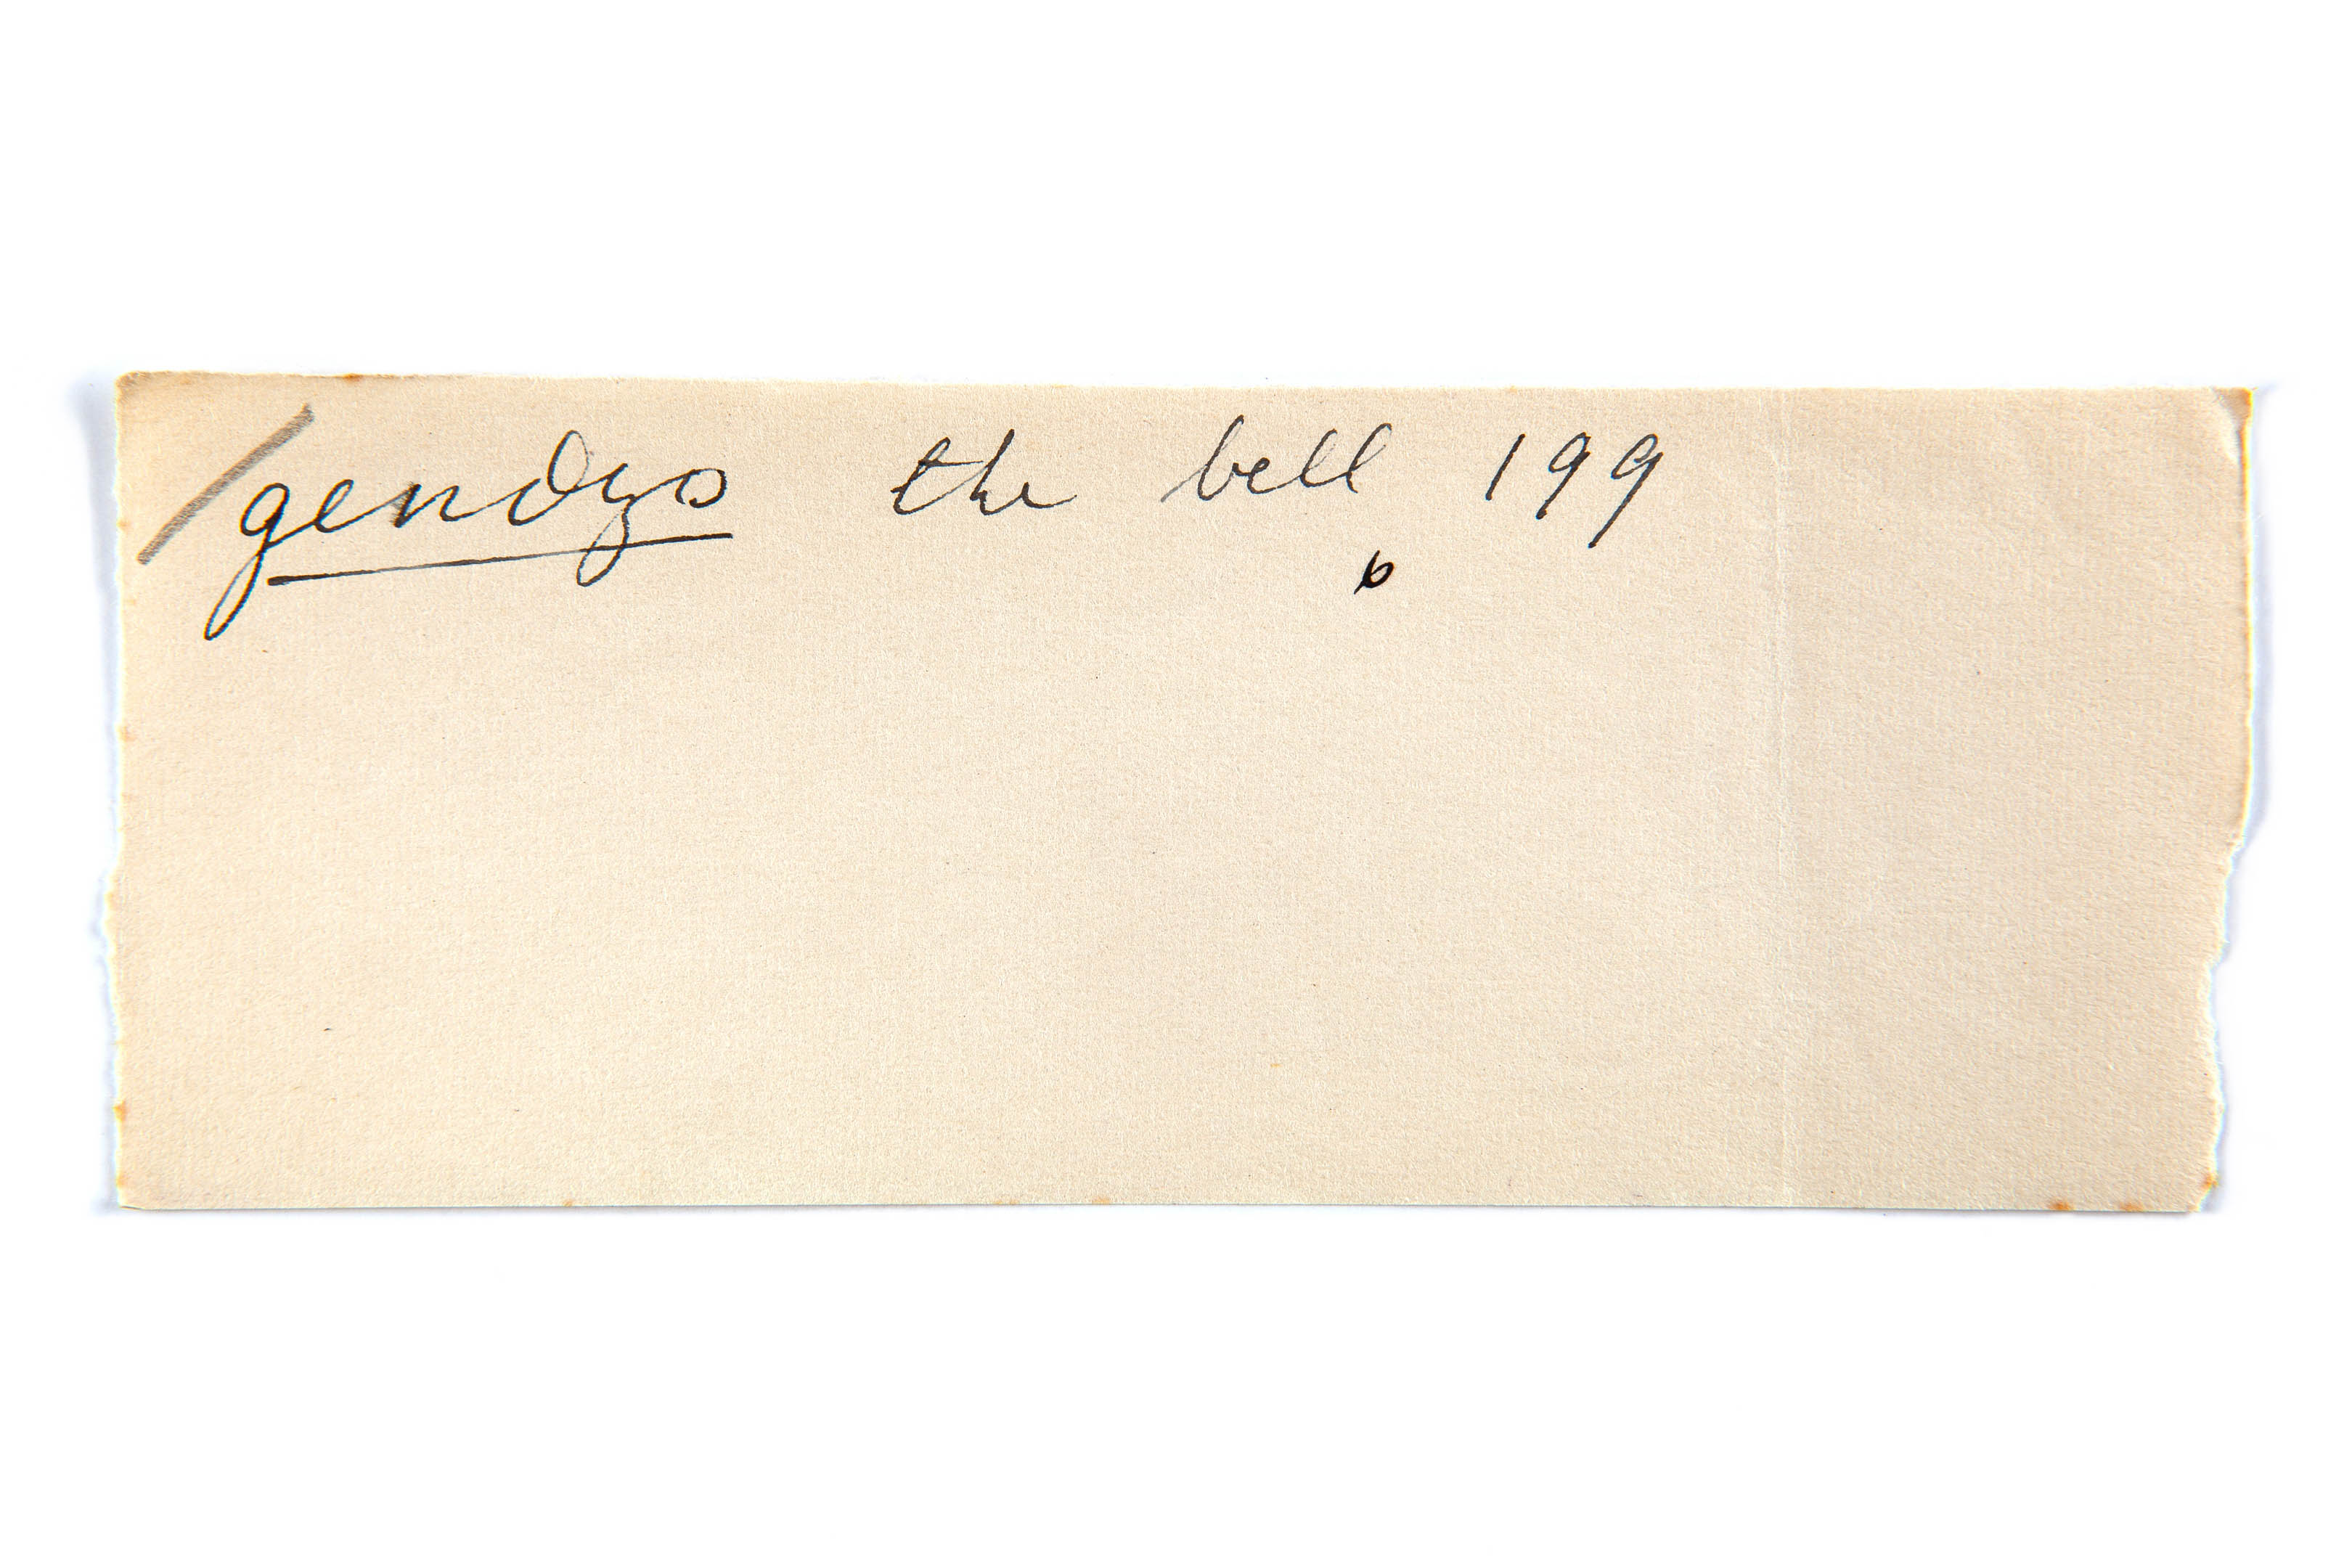 gendzo the bell 199
6